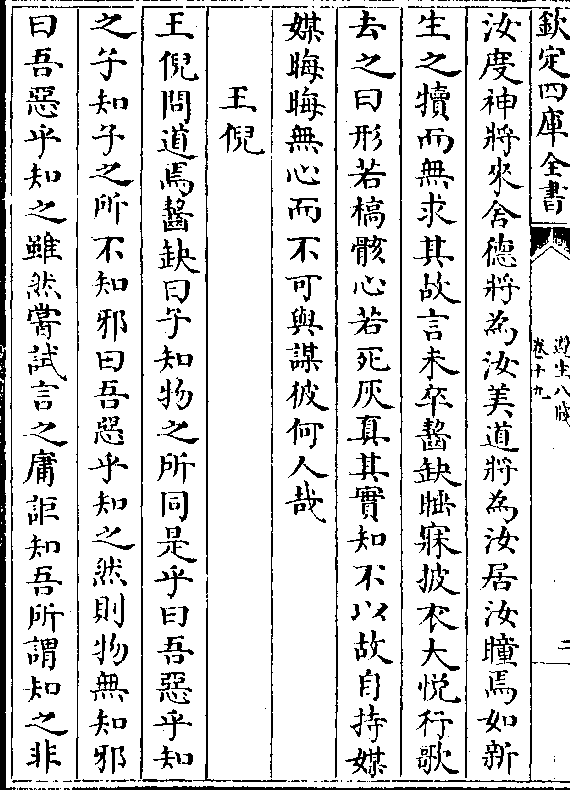 欽定四庫全書
遵生八牋
卷十九
二
汝度神將來舍德將為汝美道將為汝居汝瞳焉如新
生之犢而無求其故言未卒齧缺睡寐披衣大悅行歌
去之曰形若槁骸心若死灰真其實知不以故自持媒
媒晦晦無心而不可與謀彼何人哉
王倪
王倪問道焉齧缺曰子知物之所同是乎曰吾惡乎知
之子知子之所不知邪曰吾惡乎知之然則物無知邪
曰吾惡乎知之雖然嘗試言之庸詎知吾所謂知之非